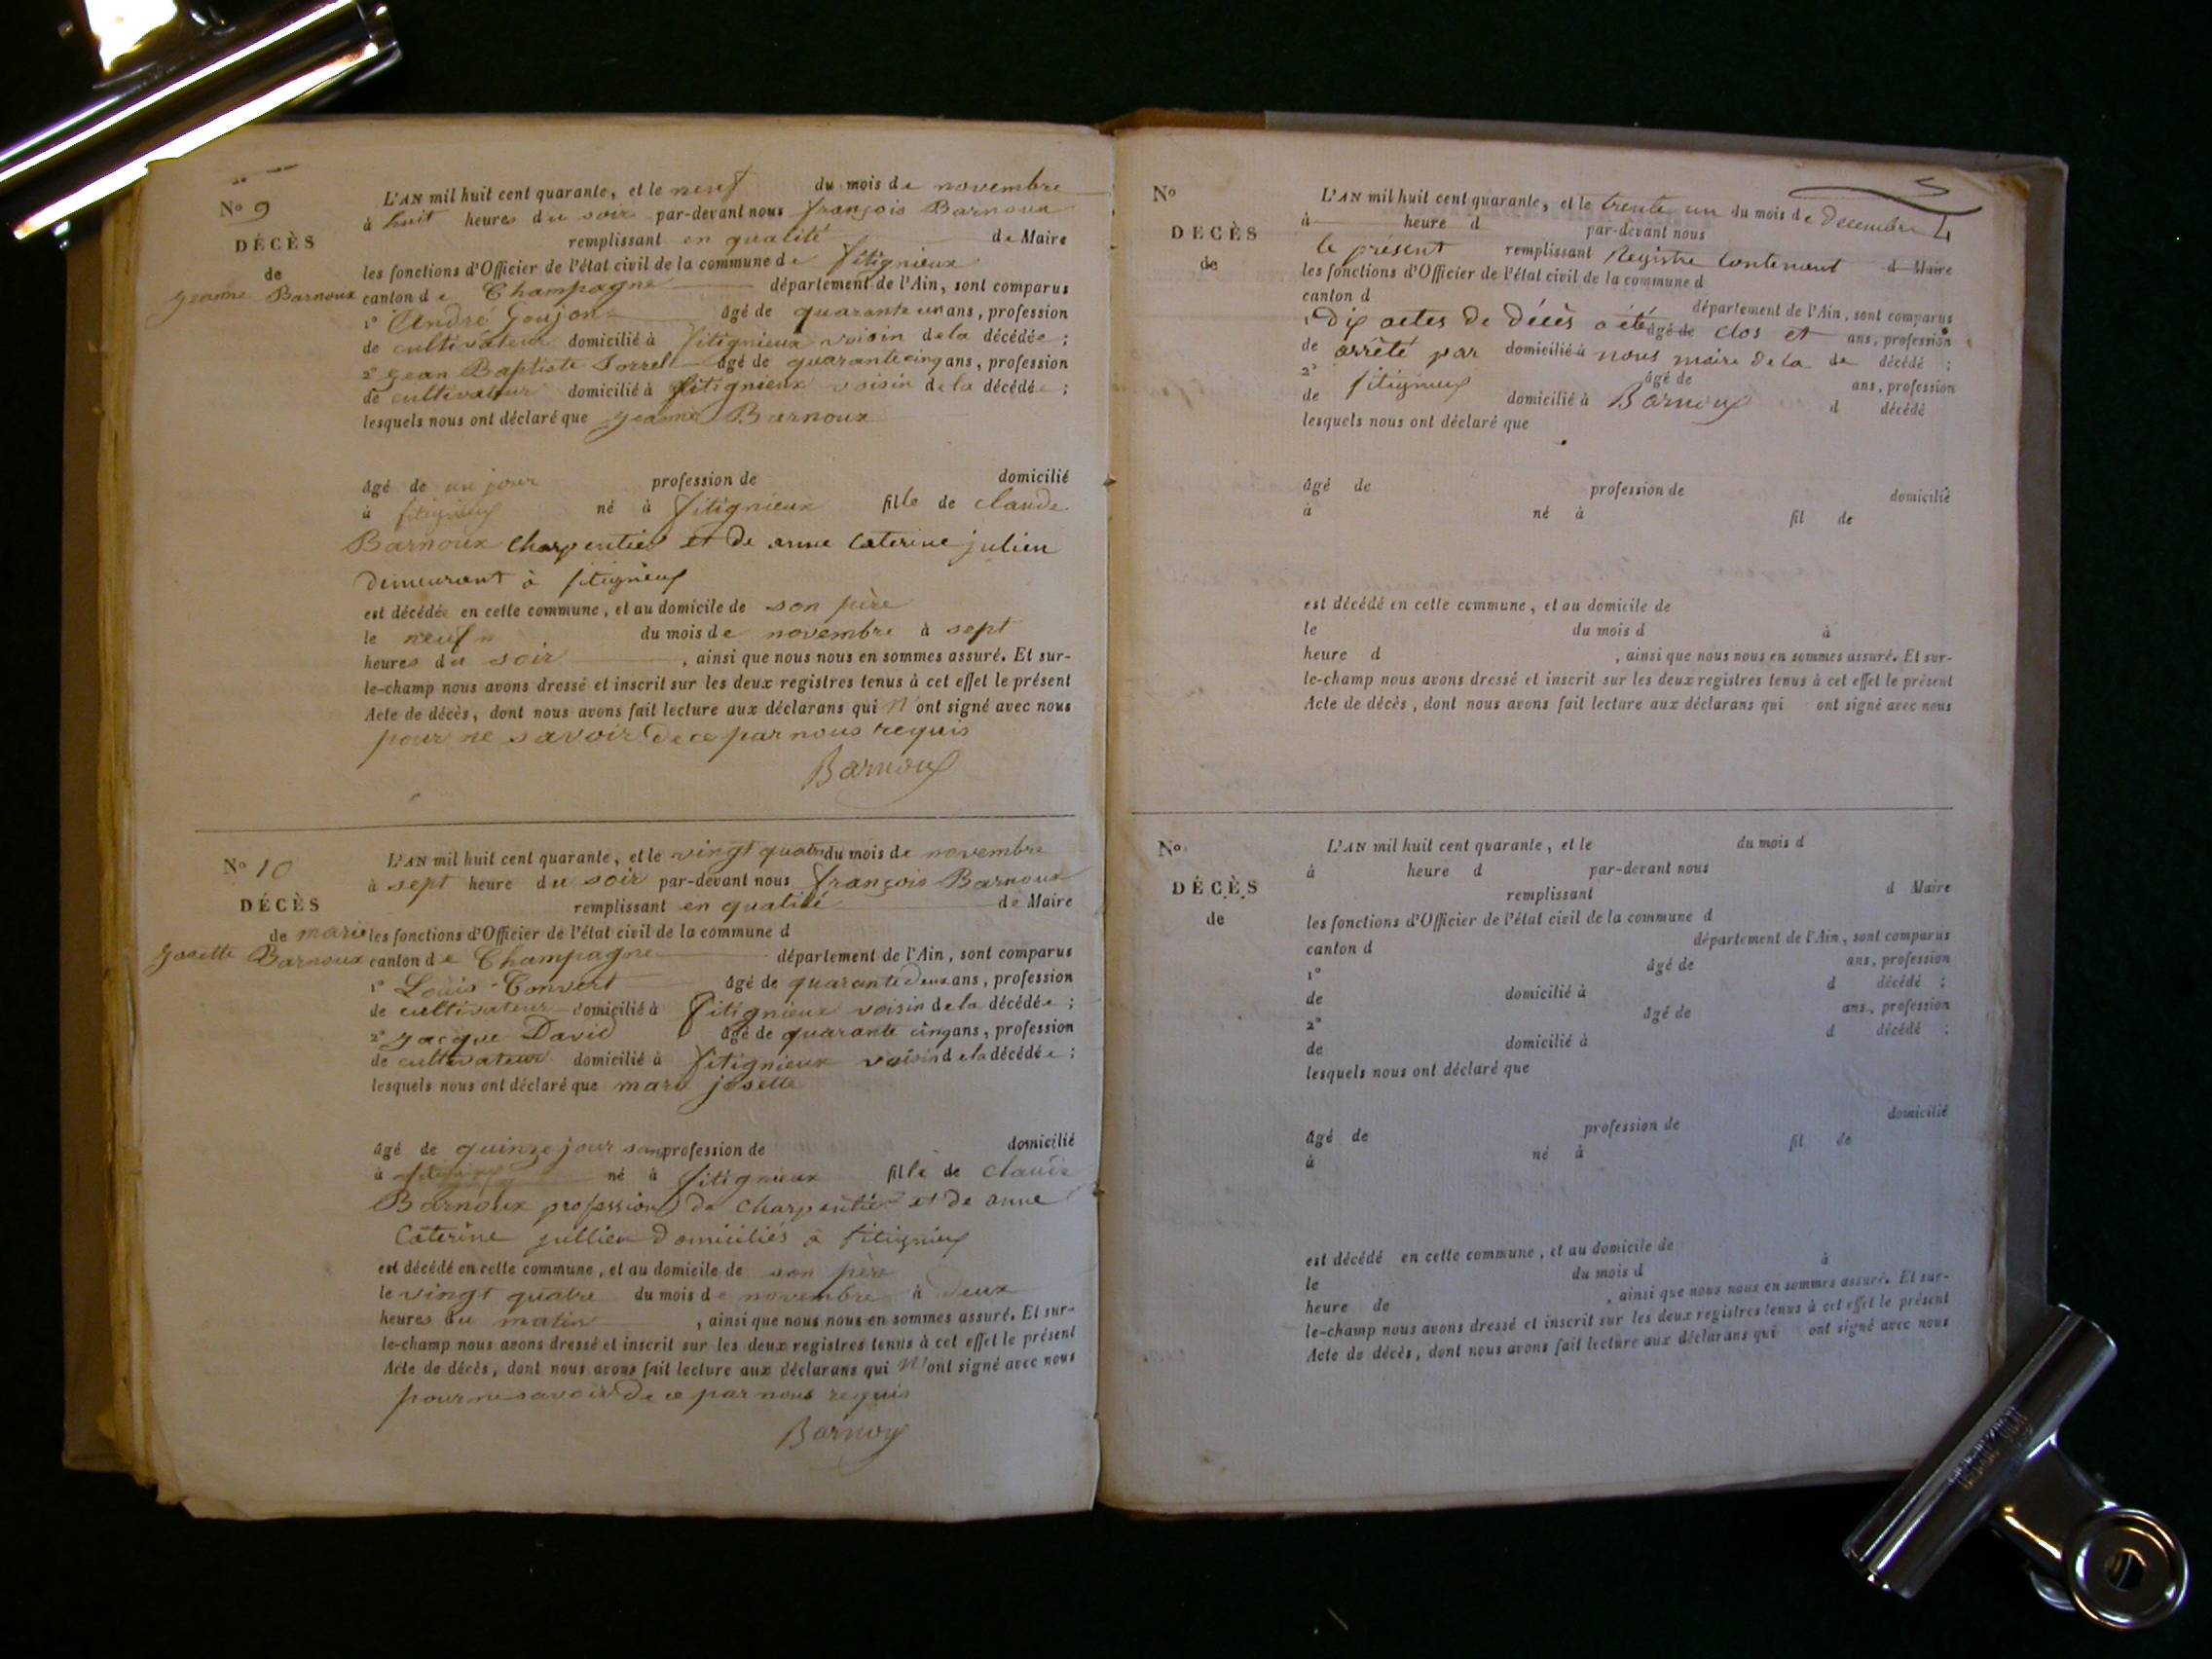 No 9
DÉCÈS
de
jeanne Barnoux
L'AN mil huit cent quarante, et le neuf du mois de novembre
à huit heures du soir par-devant nous françois Barnoux
remplissant en qualité de Maire
les fonctions d'Officier de l'état civil de la commune de fitignieux
canton de Champagne département de l'Ain, sont comparus
1° André Goujon âgé de quarante un ans, profession
de cultivateur domicilié à fitignieux voisin de la décédée ;
2° jean Baptiste Sorrel âgé de quarante cinq ans, profession
de cultivateur domicilié à fitignieux voisin de la décédée ;
lesquels nous ont déclaré que jeanne Barnoux
âgé de un jour profession de domicilié
à fitignieux né à fitignieux fille de claude
Barnoux Charpentier et de anne Caterine julien
Demeurant à fitignieux
est décédée en cette commune, et au domicile de son père
le neuf du mois de novembre à sept
heures du soir, ainsi que nous nous en sommes assuré. Et sur-
le-champ nous avons dressé et inscrit sur les deux registres tenus à cet effet le présent
Acte de décès, dont nous avons fait lecture aux déclarans qui N'ont signé avec nous
pour ne savoir De ce par nous requis
Barnoux
No 10
DÉCÈS
de marie
josette Barnoux
L'AN mil huit cent quarante, et le vingt quatre du mois de novembre
à sept heure du soir par-devant nous françois Barnoux
remplissant en qualité de Maire
les fonctions d'Officier de l'état civil de la commune d
canton de Champagne département de l'Ain, sont comparus
1° Louis Convert âgé de quarante Deux ans, profession
de cultivateur domicilié à fitignieux voisin de la décédée ;
2° jacque David âgé de quarante cinq ans, profession
de cultivateur domicilié à fitignieux voisin de la décédée ;
lesquels nous ont déclaré que marie josette
âgé de quinze jour san profession de domicilié
à fitignieux né à fitignieux fille de claude
Barnoux profession De Charpentier et De anne
Caterine jullien Domiciliés à fitignieux
est décédé en cette commune, et au domicile de son père
le vingt quatre du mois de novembre à Deux
heures du matin, ainsi que nous nous en sommes assuré. Et sur-
le-champ nous avons dressé et inscrit sur les deux registres tenus à cet effet le présent
Acte de décès, dont nous avons fait lecture aux déclarans qui N'ont signé avec nous
pour ne savoir De ce par nous requis
Barnoux
No
DÉCÈS
de
L'AN mil huit cent quarante, et le trente un du mois de Decembre
à heure d par-devant nous
le présent remplissant Registre Contenant d Maire
les fonctions d'Officier de l'état civil de la commune d
canton d département de l'Ain, sont comparus
1° Dix actes De Décès a été âgé de clos et ans, profession
de arrêté par domicilié à nous maire De la de décédé ;
2° fitignieux âgé de ans, profession
de domicilié à Barnoux d décédé
lesquels nous ont déclaré que
âgé de profession de domicilié
à né à fil de
est décédé en cette commune, et au domicile de
le du mois d à
heure d , ainsi que nous nous en sommes assuré. Et sur-
le-champ nous avons dressé et inscrit sur les deux registres tenus à cet effet le présent
Acte de décès, dont nous avons fait lecture aux déclarans qui ont signé avec nous
No
DÉCÈS
de
L'AN mil huit cent quarante, et le du mois d
à heure d par-devant nous
remplissant d Maire
les fonctions d'Officier de l'état civil de la commune d
canton d département de l'Ain, sont comparus
1° âgé de ans, profession
de domicilié à d décédé ;
2° âgé de ans, profession
de domicilié à d décédé ;
lesquels nous ont déclaré que
âgé de profession de domicilié
à né à fil de
est décédé en cette commune, et au domicile de
le du mois d à
heure de , ainsi que nous nous en sommes assuré. Et sur-
le-champ nous avons dressé et inscrit sur les deux registres tenus à cet effet le présent
Acte de décès, dont nous avons fait lecture aux déclarans qui ont signé avec nous